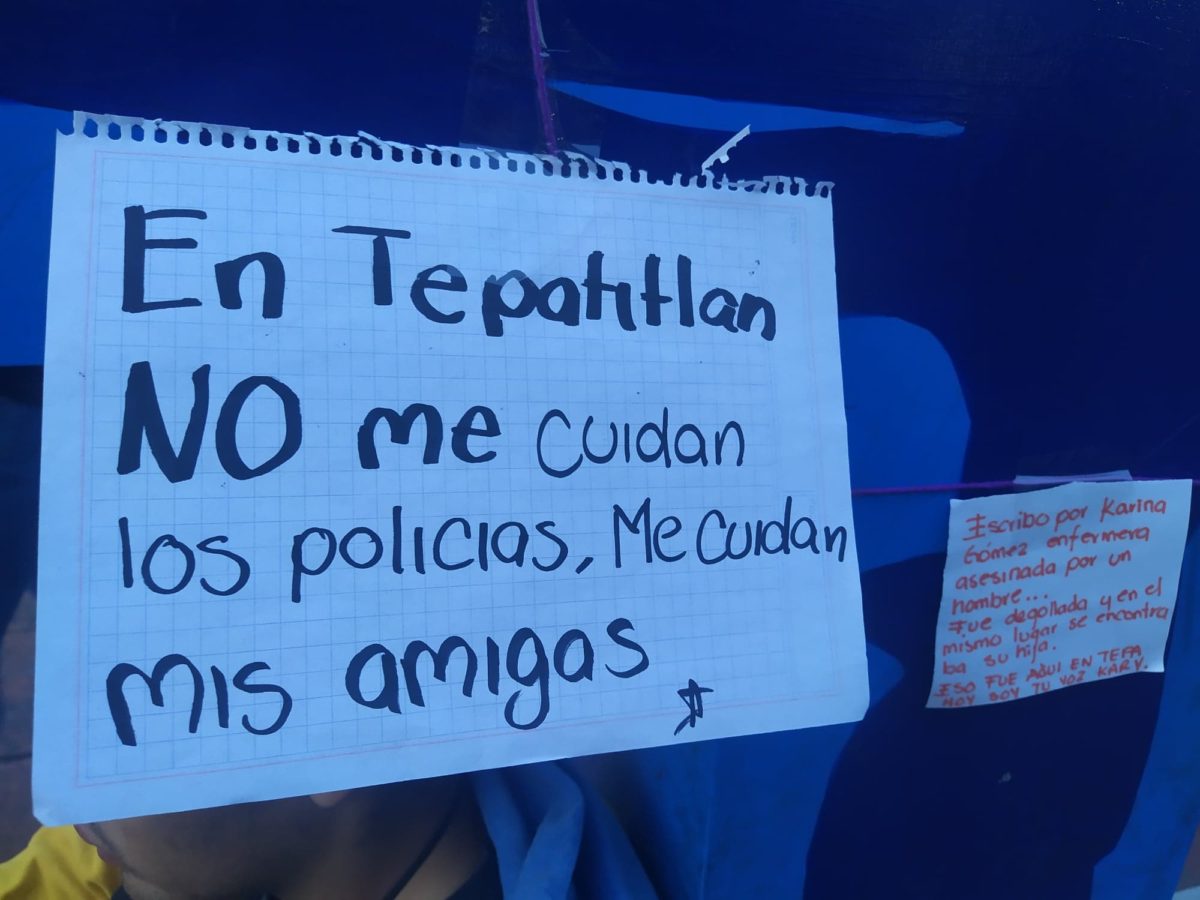 En Tepatitlan
NO me cuidan
los policias, Me cuidan
mis amigas
Escribo por Karina
Gómez enfermera
asesinada por un
hombre...
Fue degollada y en el
mismo lugar se encontra
ba su hija.
ESO FUE AQUI EN TEPA
HOY SOY TU VOZ KARY.